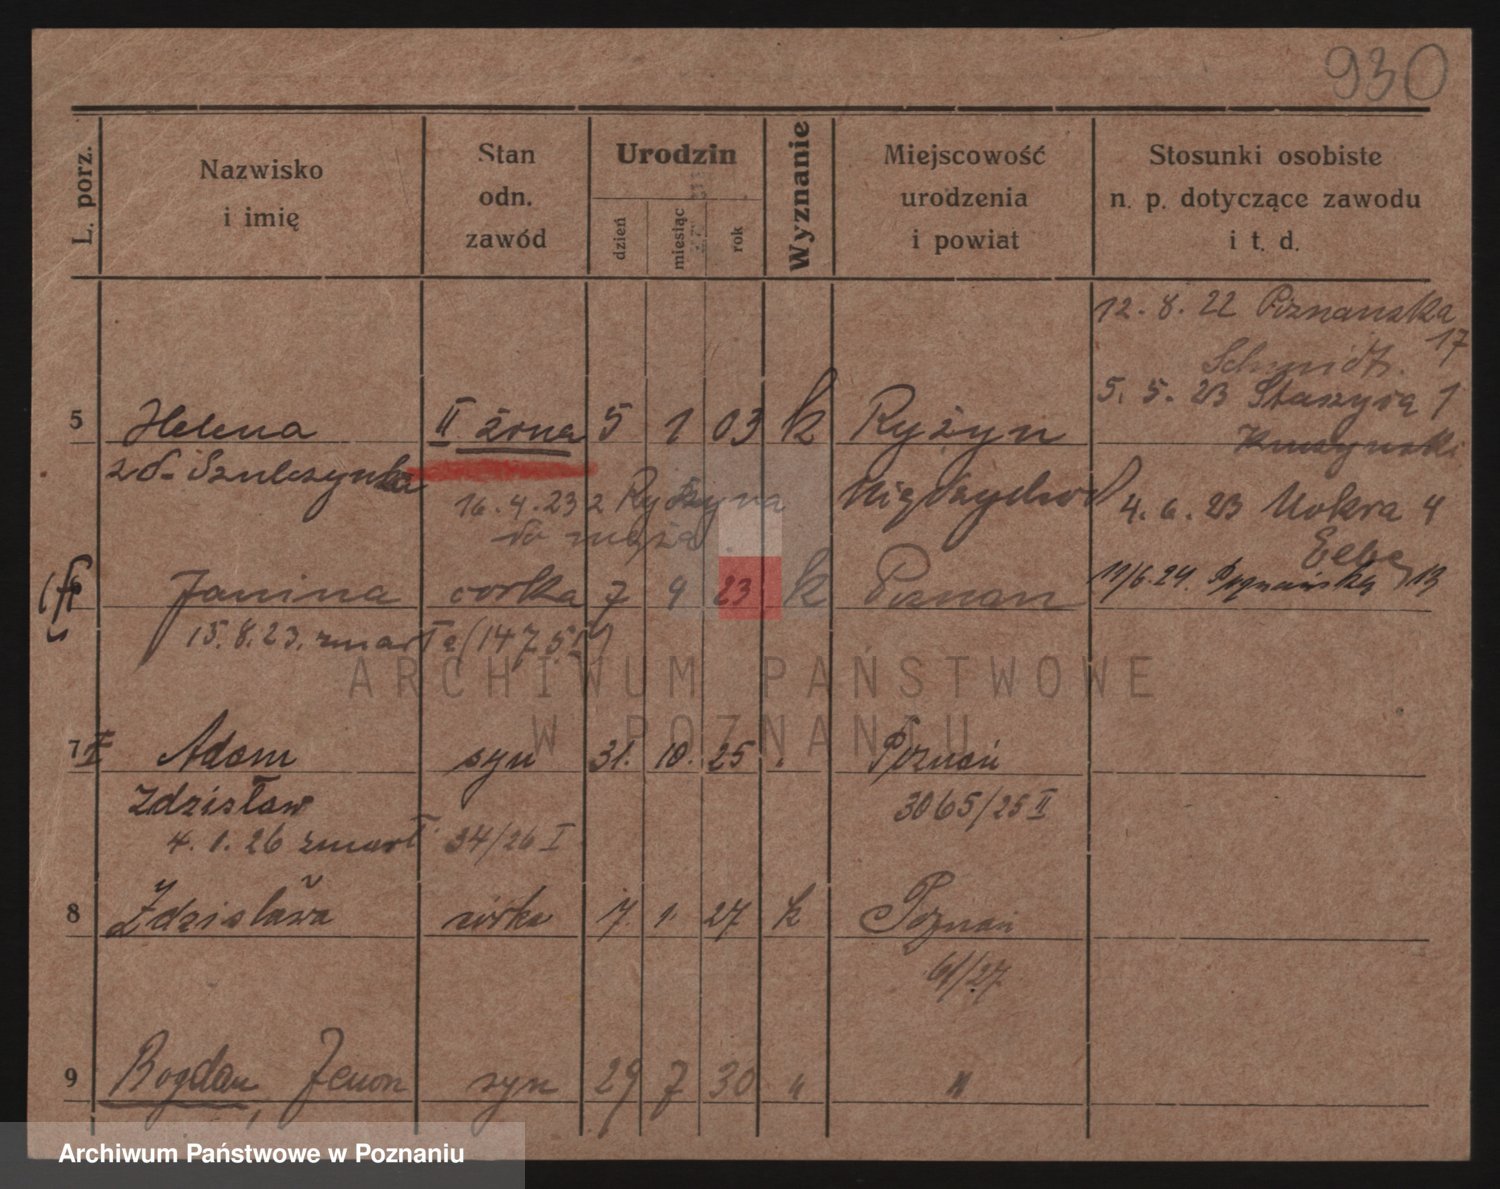 930
L. porz.
Nazwisko
i imię
Stan
odn.
zawód
Urodzin
dzień
miesiąc
rok
Wyznanie
Miejscowość
urodzenia
i powiat
Stosunki osobiste
n. p. dotyczące zawodu
i t. d.
12. 8. 22 Poznańska
17
Schmidt.
5. 5. 23 Staszyca 1
5 Helena II żona 5 1 03 k Ryżyn
zd. Szulczynska Międzychod
16.4.23 z Rydzyna
do męża
4. 6. 23 Mokra 4
6 Janina córka 7 4 23 k Poznan
11/6.24. Poznańska 13
15.8.23. zmarła (1475
7 Adam syn 31. 10. 25 Poznań
Zdzisław 3065/25 II
4. 1. 26 zmarł 34/26 I
8 Zdzisława córka 7. 1. 27 k Poznań
61/27
9 Bogdan, Zenon syn 29 7 30 " "
ARCHIWUM PAŃSTWOWE
W POZNANIU
Archiwum Państwowe w Poznaniu